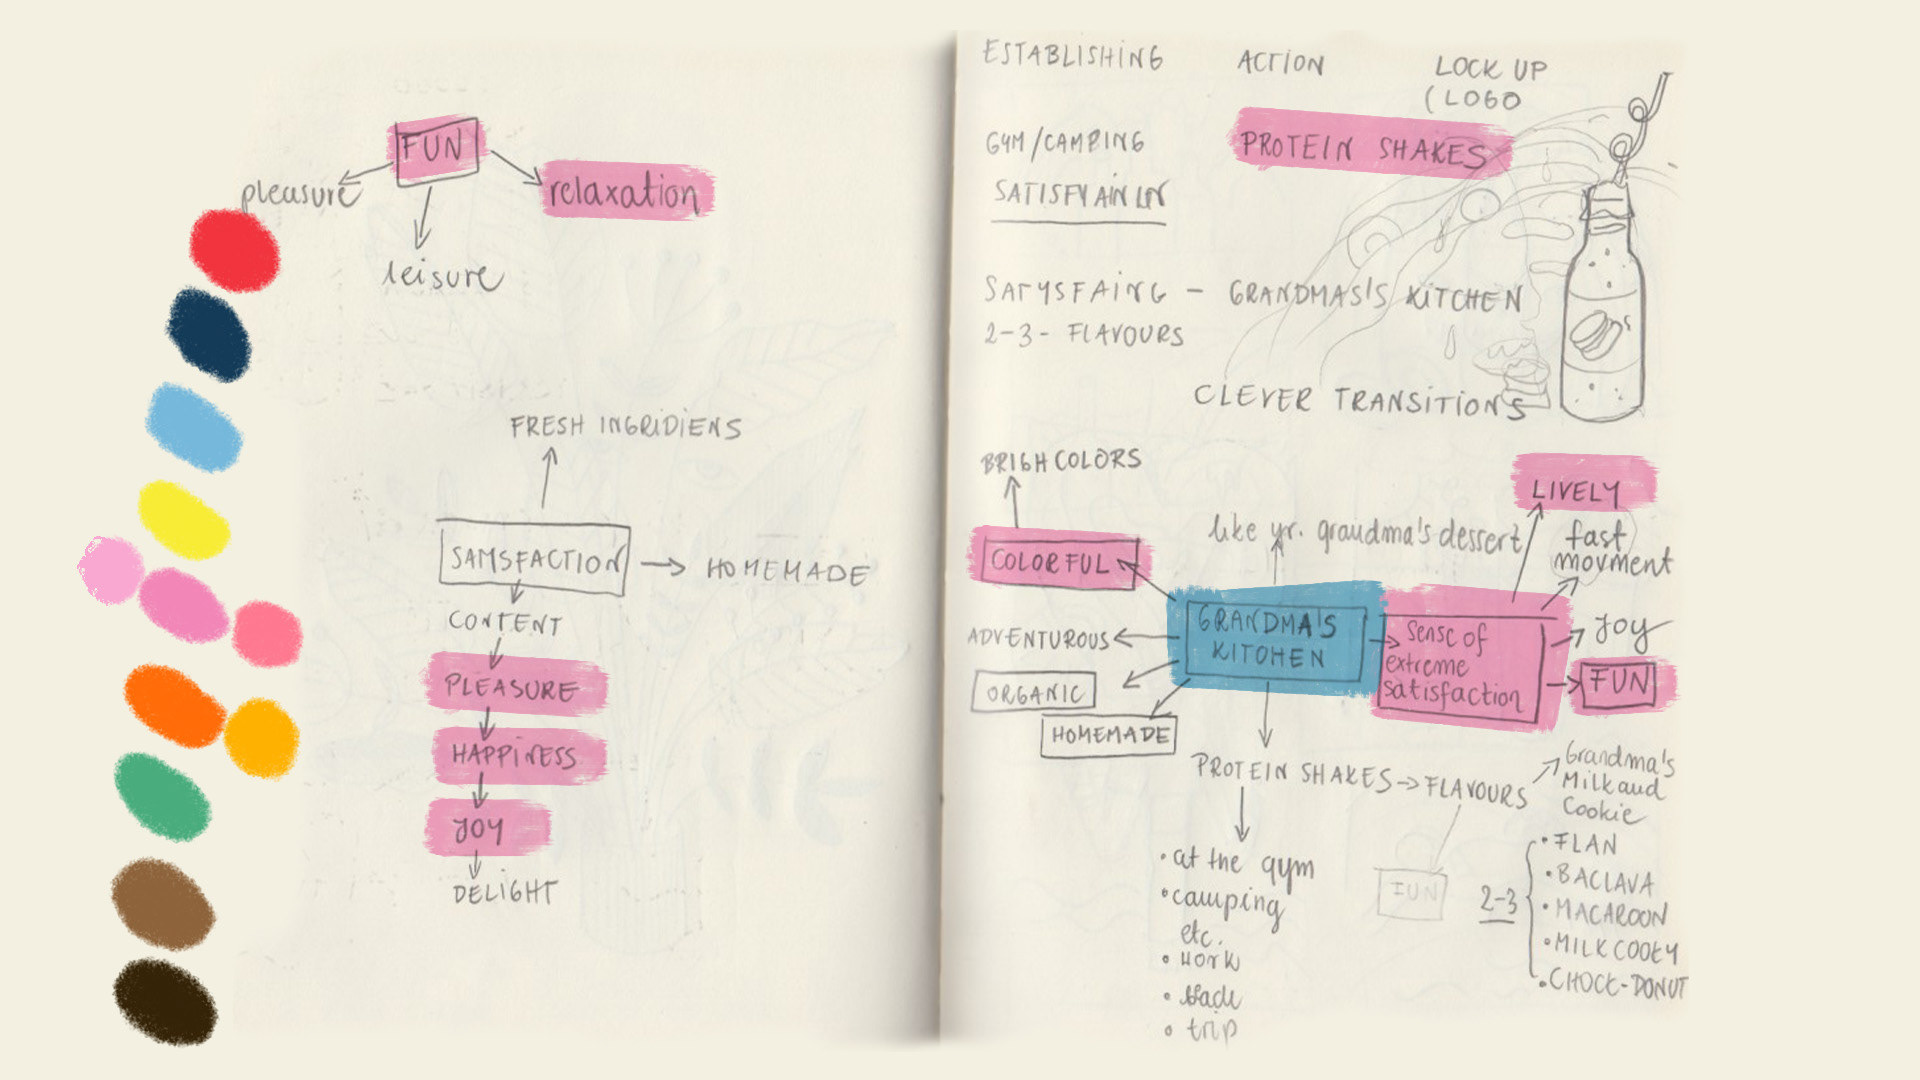 FUN
pleasure
relaxation
leisure
FRESH INGRIDIENS
SAMSFACTION
HOMEMADE
CONTENT
PLEASURE
HAPPINESS
JOY
DELIGHT
ESTABLISHING
ACTION
LOCK UP
(LOGO
GYM/CAMPING
PROTEIN SHAKES
SATYSFAING - GRANDMAS'S KITCHEN
2-3- FLAVOURS
CLEVER TRANSITIONS
BRIGH COLORS
COLORFUL
like yr. grandma's dessert
LIVELY
fast
movment
ADVENTUROUS
GRANDMA'S
KITCHEN
sense of
extreme
satisfaction
JOY
FUN
ORGANIC
HOMEMADE
PROTEIN SHAKES → FLAVOURS
Grandma's
Milk and
Cookie
• at the gym
• camping
etc.
• work
• trip
FUN
2-3
• FLAN
• BACLAVA
• MACAROON
• MILK COOKY
• CHOCK-DONUT